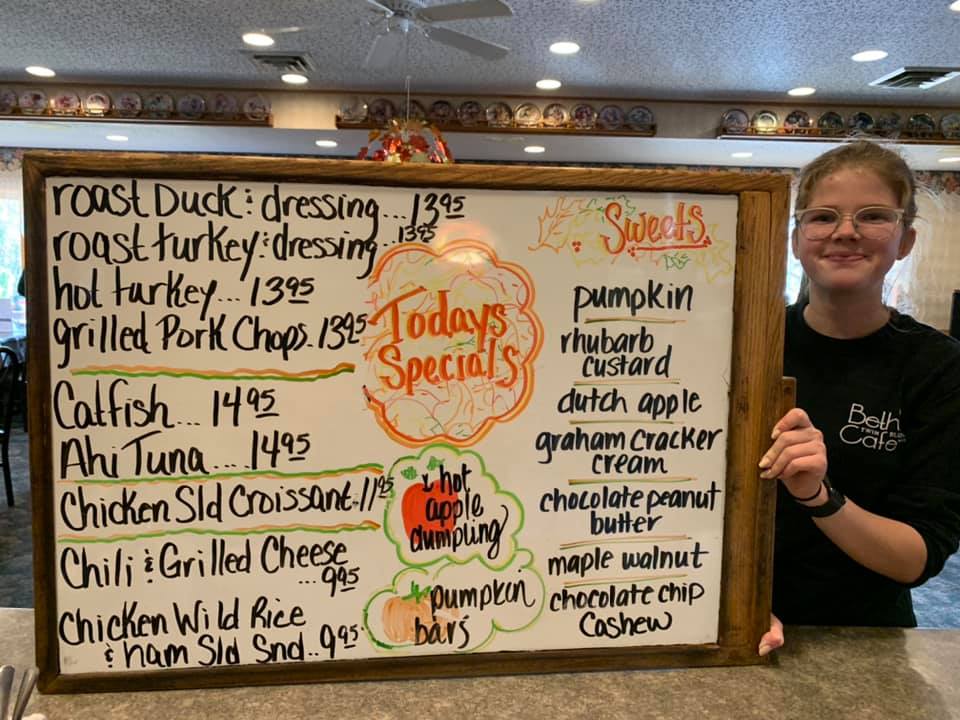 roast Duck & dressing...13.95
roast turkey & dressing..13.95
hot turkey... 13.95
grilled Pork Chops. 13.95
Catfish... 14.95
Ahi Tuna....14.95
Chicken Sld Croissant..11.95
Chili & Grilled Cheese
...9.95
Chicken Wild Rice
& ham Sld Snd..9.95
Todays
Specials
hot
apple
dumpling
pumpkin
bars
Sweets
pumpkin
rhubarb
custard
dutch apple
graham cracker
cream
chocolate peanut
butter
maple walnut
chocolate chip
Cashew
Beth's
TWIN
Cafe